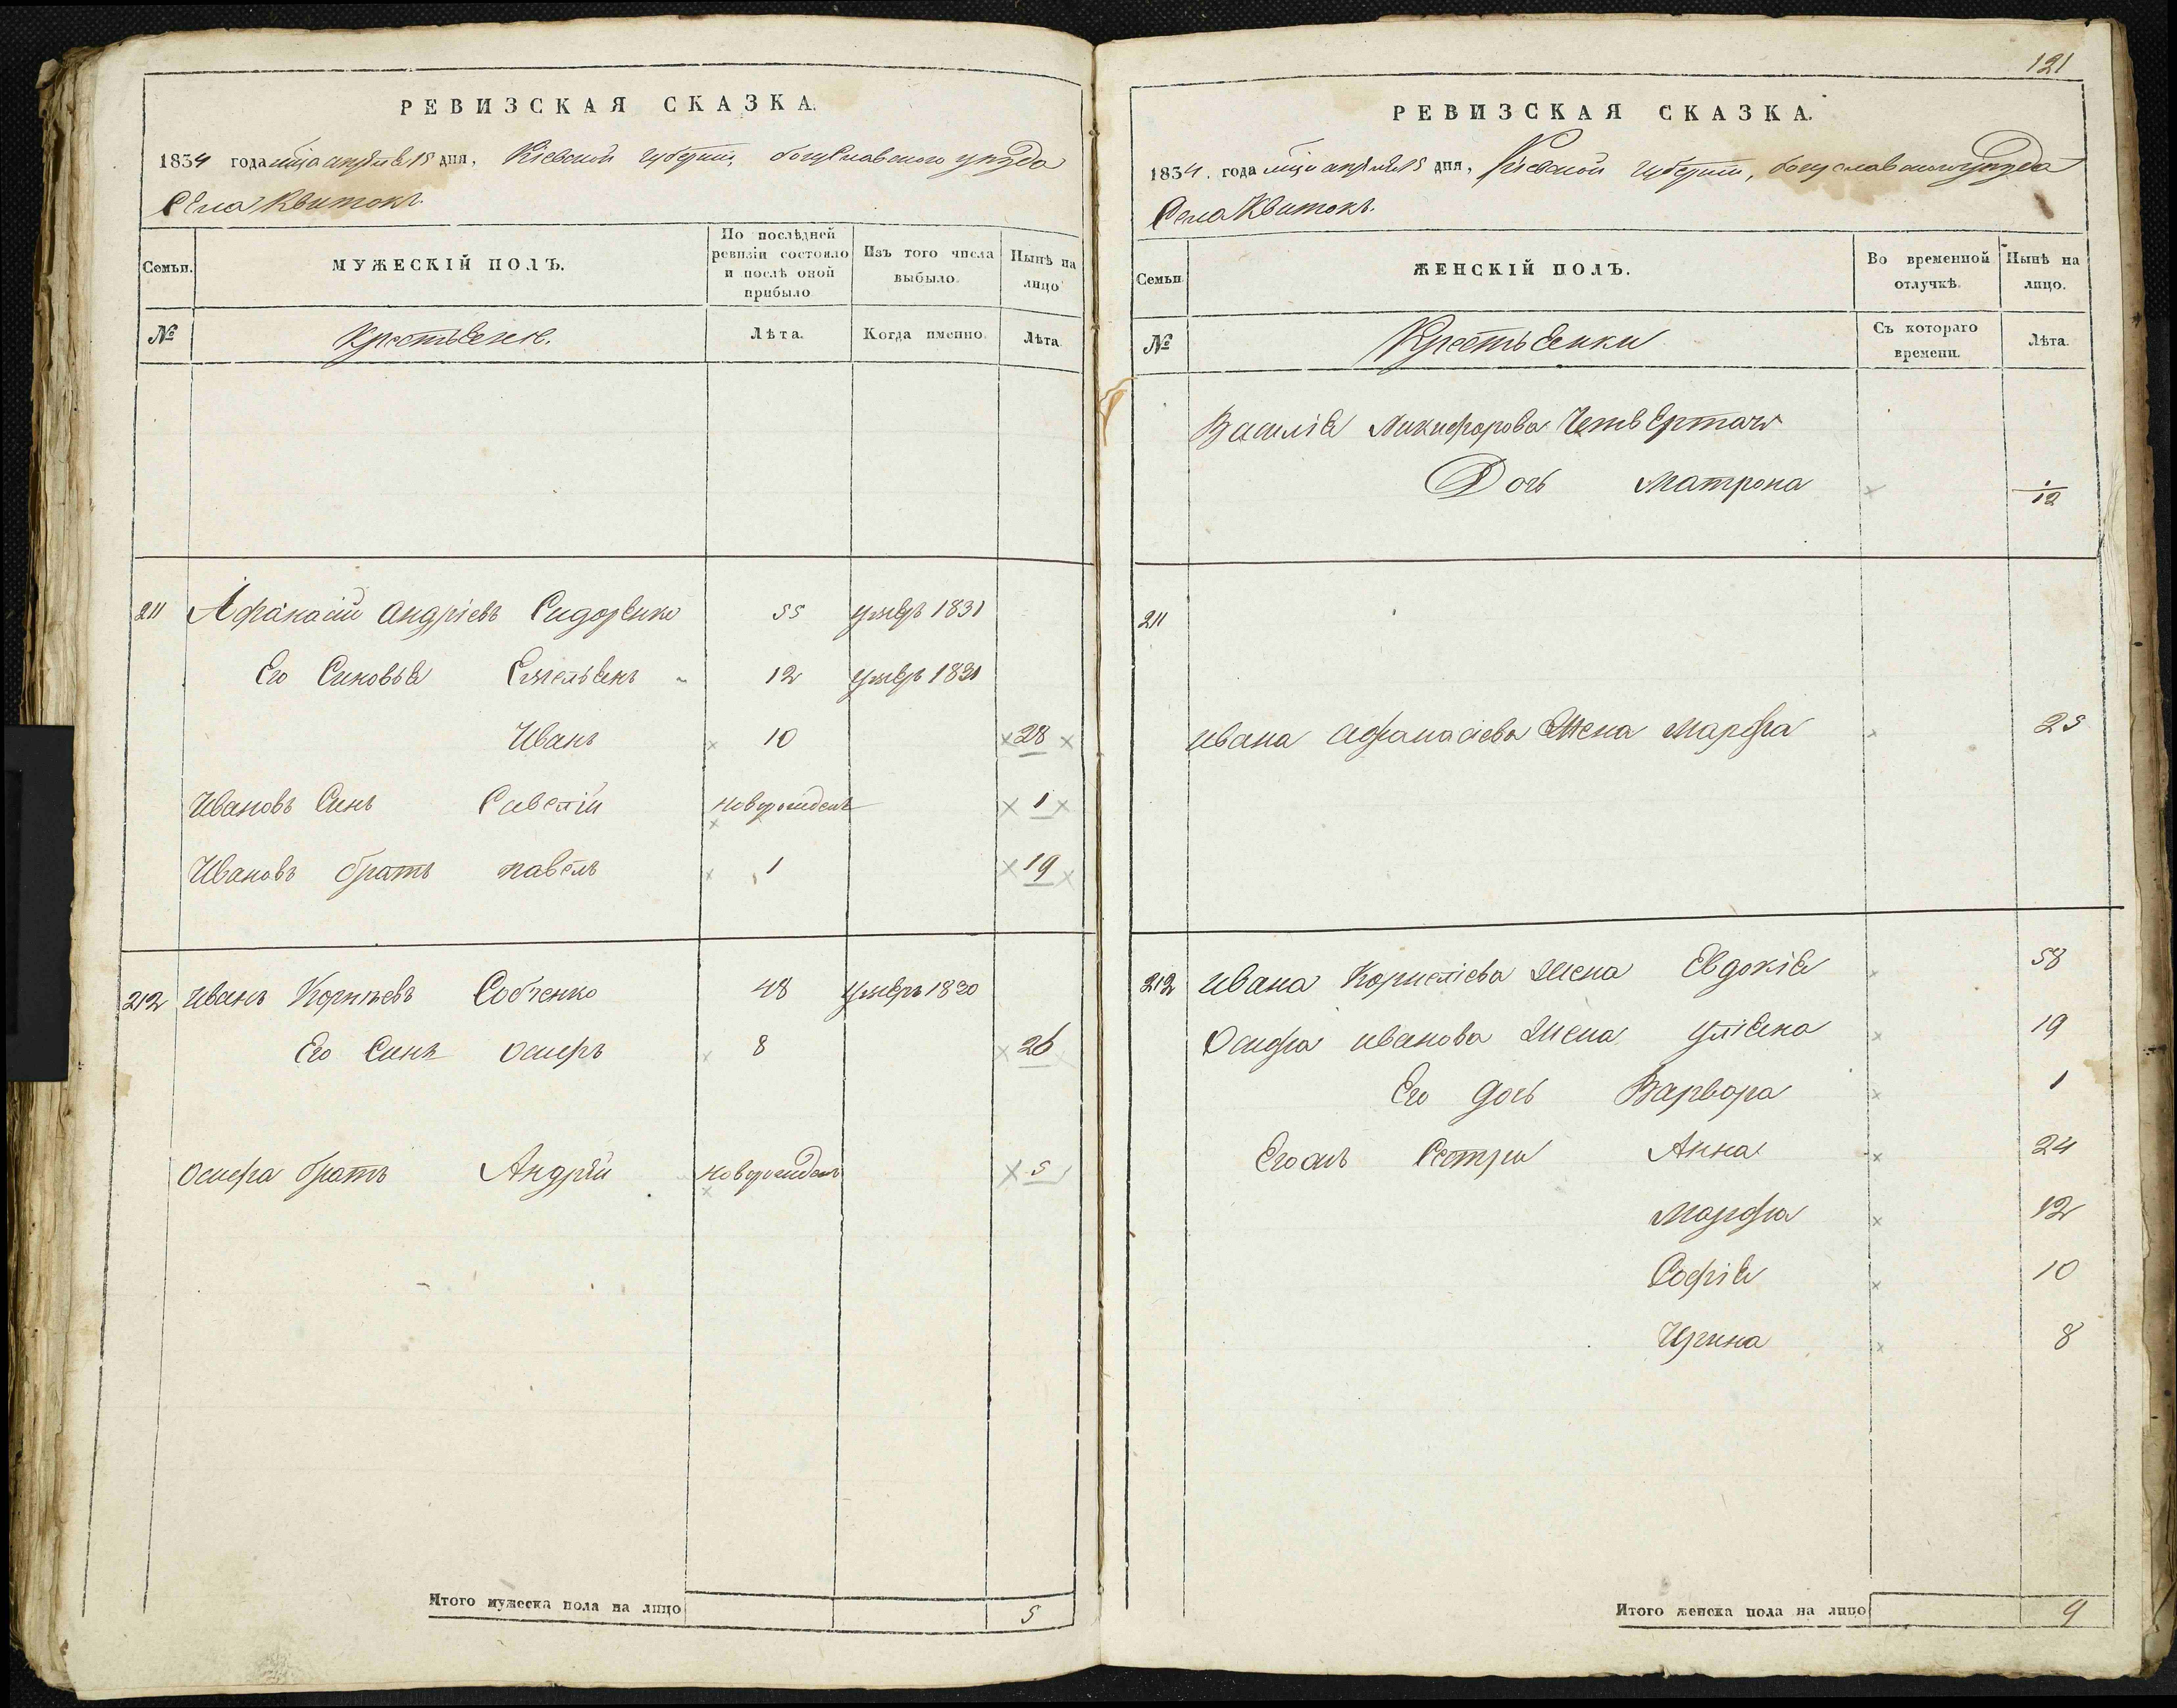 РЕВИЗСКАЯ СКАЗКА.
1834 года мца апреля 15 дня, Кіевской губерніи, богуславского уезда
Села Квитокъ.
Семьи. МУЖЕСКІЙ ПОЛЪ. По послѣдней ревизіи состояло и послѣ оной прибыло Изъ того числа выбыло. Нынѣ на лицо
№ Крестьяне. Лѣта. Когда именно. Лѣта.
211 Афанасій Андріевъ Сидоренко 55 умеръ 1831
Его Синовья Емельянъ 12 умеръ 1831
Иванъ 10 28
Ивановъ Синъ Савелій новорожденъ 1
Ивановъ братъ павелъ 1 19
212 Иванъ Корнѣевъ Собченко 48 умеръ 1830
Его Синъ осифъ 8 26
осифа братъ Андрей новорожденъ 5
Итого мужеска пола на лицо 5
121
РЕВИЗСКАЯ СКАЗКА.
1834. года мца апреля 15 дня, Кіевской губерніи, богуславского уезда
Села Квитокъ.
Семьи. ЖЕНСКІЙ ПОЛЪ. Во временной отлучкѣ. Нынѣ на лицо.
№ Крестьянки Съ котораго времени. Лѣта.
Василія Никифорова Четвертая
Дочь Матрона 1/12
211
Ивана Афанасіева Жена Марфа 25
212 Ивана Корнеліева Жена Евдокія 58
Осифа иванова Жена уліяна 19
Его дочь Варвора 1
Сестри Анна 24
Марфа 12
Софія 10
Ирина 8
Итого женска пола на лицо 9